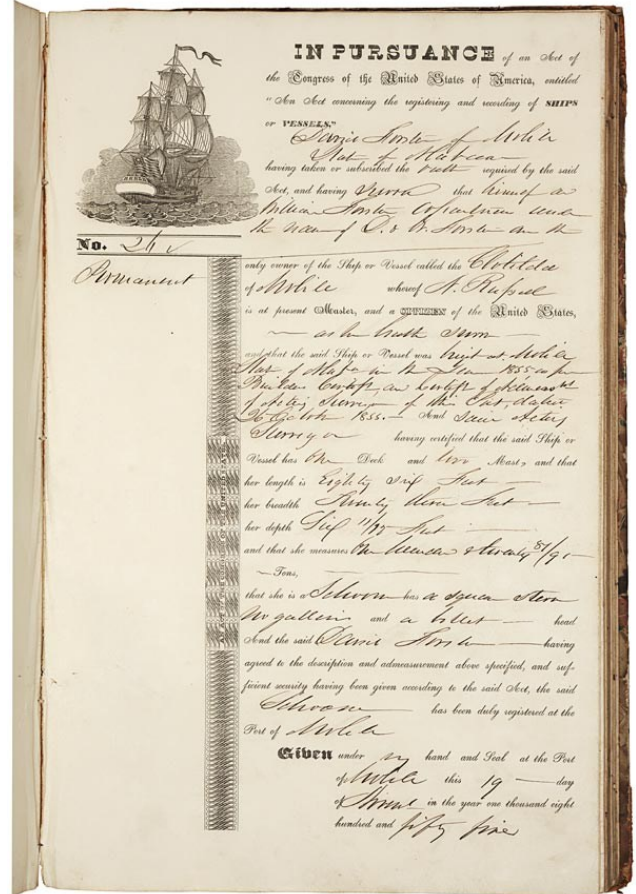 IN PURSUANCE of an Act of
the Congress of the United States of America, entitled
"An Act concerning the registering and recording of SHIPS
or VESSELS,"
of Mobile
State of
having taken or subscribed the Oath required by the said
Act, and having Sworn that himself
William
the name of D. & W. are the
No.
Permanent
only owner of the Ship or Vessel called the Clotilda
of Mobile whereof A.
is at present Master, and a CITIZEN of the United States,
as he hath Sworn
and that the said Ship or Vessel was built at Mobile
State of in the Year 1855 as per
Builders
of Acting Surveyor of this Port, dated
October 1855. And Said Acting
Surveyor having certified that the said Ship or
Vessel has One Deck and two Masts and that
her length is Eighty Six Feet
her breadth Twenty three Feet
her depth Six Feet
and that she measures One hundred & twenty
Tons,
that she is a has a square Stern
no galleries and a billet head
And the said having
agreed to the description and admeasurement above specified, and suf-
ficient security having been given according to the said Act, the said
Schooner has been duly registered at the
Port of Mobile
Given under my hand and Seal at the Port
of Mobile this 19 day
of in the year one thousand eight
hundred and fifty five